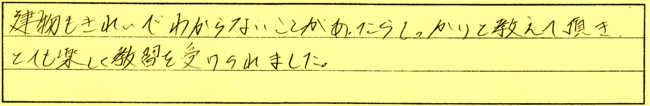 建物もきれいでわからないことがあったらしっかりと教えて頂き、
とても楽しく教習を受けられました。